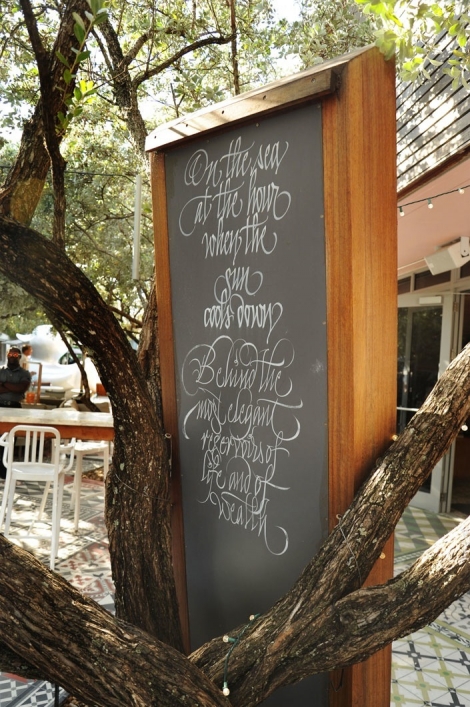 On the sea
at the hour
when the
sun
cools down
Behind the
most elegant
reservoirs of
life and of
wealth